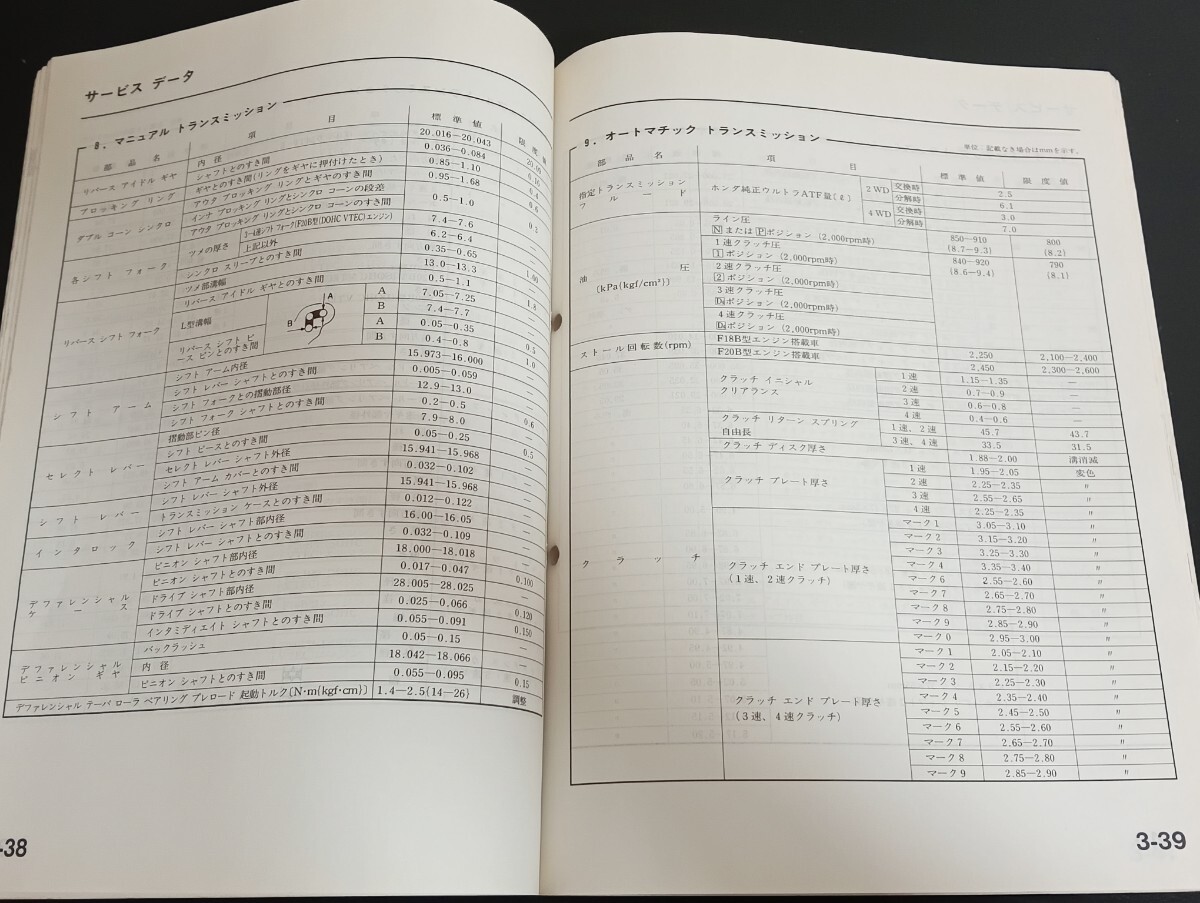 サービス データ
8. マニュアル トランスミッション
部 品 名 項 目 標 準 値 限 度 値
リバース アイドル ギヤ 内 径 20.016—20.043
シャフトとのすき間 0.036—0.084
ブロッキング リング ギヤとのすき間(リングをギヤに押付けたとき) 0.85—1.10 0.4
ダブル コーン シンクロ アウタ ブロッキング リングとギヤのすき間 0.95—1.68 0.6
インナ ブロッキング リングとシンクロ コーンの段差 0.5—1.0
アウタ ブロッキング リングとシンクロ コーンのすき間 0.3
各シフト フォーク ツメの厚さ 3-4速シフトフォーク(F20B型(DOHC VTEC)エンジン) 7.4—7.6
上記以外 6.2—6.4
シンクロ スリーブとのすき間 0.35—0.65 1.00
リバース シフト フォーク ツメ部溝幅 13.0—13.3
リバース アイドル ギヤとのすき間 0.5—1.1 1.8
L型溝幅 A 7.05—7.25
B 7.4—7.7
リバース シフト ピース ピンとのすき間 A 0.05—0.35 0.5
B 0.4—0.8 1.0
A
B
シフト アーム シフト アーム内径 15.973—16.000
シフト レバー シャフトとのすき間 0.005—0.059
シフト フォークとの摺動部径 12.9—13.0
シフト フォーク シャフトとのすき間 0.2—0.5 0.6
セレクト レバー 摺動部ピン径 7.9—8.0
シフト ピースとのすき間 0.05—0.25 0.5
セレクト レバー シャフト外径 15.941—15.968 —
シフト アーム カバーとのすき間 0.032—0.102 —
シフト レバー シフト レバー シャフト外径 15.941—15.968 —
トランスミッション ケースとのすき間 0.012—0.122 —
インタロック シフト レバー シャフト部内径 16.00—16.05 —
シフト レバー シャフトとのすき間 0.032—0.109 —
デファレンシャル ケース ピニオン シャフト部内径 18.000—18.018 —
ピニオン シャフトとのすき間 0.017—0.047 0.100
ドライブ シャフト部内径 28.005—28.025 —
ドライブ シャフトとのすき間 0.025—0.066 0.120
インタミディエイト シャフトとのすき間 0.055—0.091 0.150
デファレンシャル ピニオン ギヤ バックラッシュ 0.05—0.15 —
内 径 18.042—18.066 —
ピニオン シャフトとのすき間 0.055—0.095 0.15
デファレンシャル テーパ ローラ ベアリング プレロード 起動トルク〔N·m{kgf·cm}〕 1.4—2.5{14—26} 調整
-38
9. オートマチック トランスミッション
単位:記載なき場合はmmを示す。
部 品 名 項 目 標 準 値 限 度 値
指定トランスミッション フルード ホンダ純正ウルトラATF量(ℓ) 2WD 交換時 2.5
分解時 6.1
4WD 交換時 3.0
分解時 7.0
油 圧 〔kPa{kgf/cm²}〕 ライン圧 850—910 800
N または P ポジション (2,000rpm時) {8.7—9.3} {8.2}
1速クラッチ圧 840—920 790
1 ポジション (2,000rpm時) {8.6—9.4} {8.1}
2速クラッチ圧
2 ポジション (2,000rpm時)
3速クラッチ圧
D4 ポジション (2,000rpm時)
4速クラッチ圧
D4 ポジション (2,000rpm時)
ストール回転数(rpm) F18B型エンジン搭載車 2,250 2,100—2,400
F20B型エンジン搭載車 2,450 2,300—2,600
クラッチ クラッチ イニシャル クリアランス 1速 1.15—1.35 —
2速 0.7—0.9 —
3速 0.6—0.8 —
4速 0.4—0.6 —
クラッチ リターン スプリング 自由長 1速、2速 45.7 43.7
3速、4速 33.5 31.5
クラッチ ディスク厚さ 1.88—2.00 溝消滅
クラッチ プレート厚さ 1速 1.95—2.05 変色
2速 2.25—2.35 〃
3速 2.55—2.65 〃
4速 2.25—2.35 〃
クラッチ エンド プレート厚さ (1速、2速クラッチ) マーク1 3.05—3.10 〃
マーク2 3.15—3.20 〃
マーク3 3.25—3.30 〃
マーク4 3.35—3.40 〃
マーク6 2.55—2.60 〃
マーク7 2.65—2.70 〃
マーク8 2.75—2.80 〃
マーク9 2.85—2.90 〃
マーク0 2.95—3.00 〃
クラッチ エンド プレート厚さ (3速、4速クラッチ) マーク1 2.05—2.10 〃
マーク2 2.15—2.20 〃
マーク3 2.25—2.30 〃
マーク4 2.35—2.40 〃
マーク5 2.45—2.50 〃
マーク6 2.55—2.60 〃
マーク7 2.65—2.70 〃
マーク8 2.75—2.80 〃
マーク9 2.85—2.90 〃
3-39